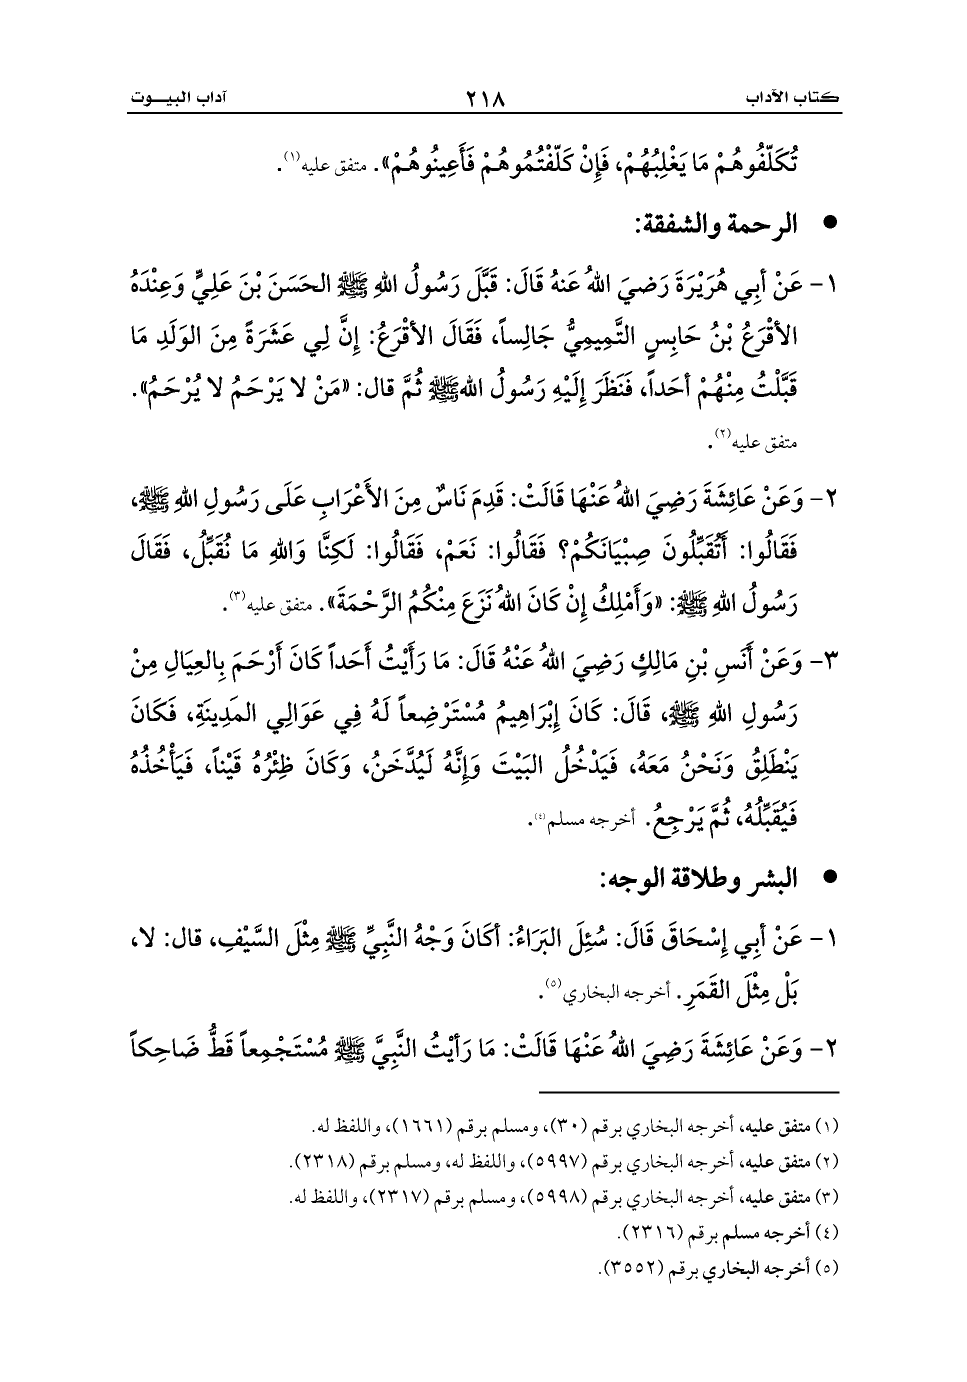 كتاب الآداب ٢١٨ آداب البيـــوت
تُكَلِّفُوهُمْ مَا يَغْلِبُهُمْ، فَإِنْ كَلَّفْتُمُوهُمْ فَأَعِينُوهُمْ». متفق عليه(١).
● الرحمة والشفقة:
١- عَنْ أبِي هُرَيْرَةَ رَضيَ اللهُ عَنهُ قَالَ: قَبَّلَ رَسُولُ اللهِ ﷺ الحَسَنَ بْنَ عَلِيٍّ وَعِنْدَهُ
الأقْرَعُ بْنُ حَابِسٍ التَّمِيمِيُّ جَالِساً، فَقَالَ الأقْرَعُ: إِنَّ لِي عَشَرَةً مِنَ الوَلَدِ مَا
قَبَّلْتُ مِنْهُمْ أحَداً، فَنَظَرَ إِلَيْهِ رَسُولُ اللهﷺ ثُمَّ قال: «مَنْ لا يَرْحَمُ لا يُرْحَمُ».
متفق عليه(٢).
٢- وَعَنْ عَائِشَةَ رَضِيَ اللهُ عَنْهَا قَالَتْ: قَدِمَ نَاسٌ مِنَ الأَعْرَابِ عَلَى رَسُولِ اللهِ ﷺ،
فَقَالُوا: أَتُقَبِّلُونَ صِبْيَانَكُمْ؟ فَقَالُوا: نَعَمْ، فَقَالُوا: لَكِنَّا وَاللهِ مَا نُقَبِّلُ، فَقَالَ
رَسُولُ اللهِ ﷺ: «وَأَمْلِكُ إِنْ كَانَ اللهُ نَزَعَ مِنْكُمُ الرَّحْمَةَ». متفق عليه(٣).
٣- وَعَنْ أَنَسِ بْنِ مَالِكٍ رَضِيَ اللهُ عَنْهُ قَالَ: مَا رَأَيْتُ أَحَداً كَانَ أَرْحَمَ بِالعِيَالِ مِنْ
رَسُولِ اللهِ ﷺ، قَالَ: كَانَ إِبْرَاهِيمُ مُسْتَرْضِعاً لَهُ فِي عَوَالِي المَدِينَةِ، فَكَانَ
يَنْطَلِقُ وَنَحْنُ مَعَهُ، فَيَدْخُلُ البَيْتَ وَإِنَّهُ لَيُدَّخَنُ، وَكَانَ ظِئْرُهُ قَيْناً، فَيَأْخُذُهُ
فَيُقَبِّلُهُ، ثُمَّ يَرْجِعُ. أخرجه مسلم(٤).
● البشر وطلاقة الوجه:
١- عَنْ أبِي إِسْحَاقَ قَالَ: سُئِلَ البَرَاءُ: أكَانَ وَجْهُ النَّبِيِّ ﷺ مِثْلَ السَّيْفِ، قال: لا،
بَلْ مِثْلَ القَمَرِ. أخرجه البخاري(٥).
٢- وَعَنْ عَائِشَةَ رَضِيَ اللهُ عَنْهَا قَالَتْ: مَا رَأيْتُ النَّبِيَّ ﷺ مُسْتَجْمِعاً قَطُّ ضَاحِكاً
(١) متفق عليه، أخرجه البخاري برقم (٣٠)، ومسلم برقم (١٦٦١)، واللفظ له.
(٢) متفق عليه، أخرجه البخاري برقم (٥٩٩٧)، واللفظ له، ومسلم برقم (٢٣١٨).
(٣) متفق عليه، أخرجه البخاري برقم (٥٩٩٨)، ومسلم برقم (٢٣١٧)، واللفظ له.
(٤) أخرجه مسلم برقم (٢٣١٦).
(٥) أخرجه البخاري برقم (٣٥٥٢).